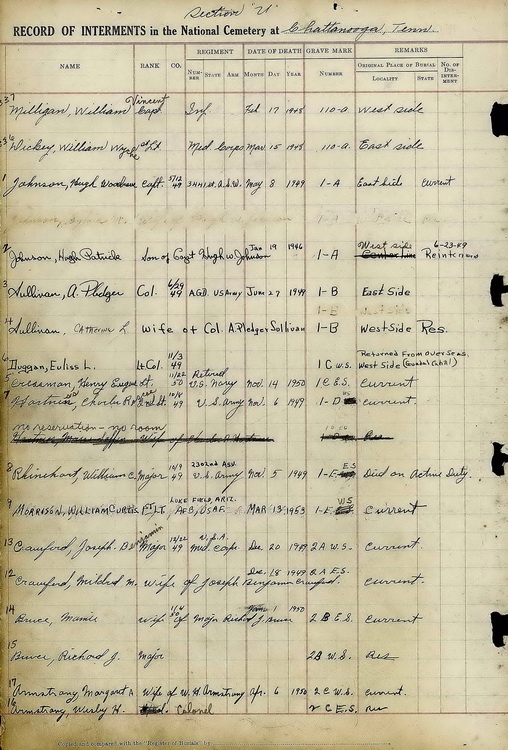 Section U
RECORD OF INTERMENTS in the National Cemetery at Chattanooga, Tenn.
NAME RANK CO. REGIMENT DATE OF DEATH GRAVE MARK REMARKS
NUMBER STATE ARM MONTH DAY YEAR NUMBER ORIGINAL PLACE OF BURIAL NO. OF DISINTERMENT
LOCALITY STATE
Milligan, William Vincent Capt. Inf Feb 17 1948 110-a. West side
Wickey, William 1st Lt Med. Corps Mar 15 1948 110-a. East side
1 Johnson, Hugh Woodson Capt. 5/12 49 A.S.W. May 8 1949 1-A East Side current
2 Johnson, Hugh Patrick Son of Capt Hugh W. Johnson Jan 19 1946 1-A West side Center line 6-23-49 Reinterred
3 Sullivan, A. Pledger Col. 6/29 49 AGD. US Army June 27 1949 1-B East Side
4 Sullivan, Catherine L. Wife of Col. A. Pledger Sullivan 1-B West Side Res.
6 Duggan, Euliss L. Lt Col. 11/3 49 1 C W.S. Returned From Overseas. West Side
5 Crossman, Henry Eugene Lt. 11/22 50 Retired U.S. Navy Nov. 14 1950 1 C E.S. Current
7 Hartnin, Charles 2nd Lt. 49 U.S. Army Nov. 6 1949 1-D current
no reservation - no room
Wife of Res
8 Rhinehart, William C. Major 10/9 49 2302nd ASU. U.S. Army Nov. 5 1949 1-E E.S. Died on Active Duty.
9 Morrison, William Curtis 1st Lt. Luke Field, Ariz. AFB, USAF Mar 13 1953 1-E W.S. Current
13 Crawford, Joseph Benjamin Major 12/22 49 U.S.A. Med. Corps Dec. 20 1949 2 A W.S. Current.
12 Crawford, Mildred M. Wife of Joseph Benjamin Crawford. Dec. 18 1949 2 A E.S. Current.
14 Bruce, Mamie Wife of Major Richard J. Bruce June 1 1950 2 B E.S. Current
15 Bruce, Richard J. Major 2B W.S. Res
17 Armstrong, Margaret A. Wife of W. H. Armstrong Apr. 6 1950 2 C W.S. current.
16 Armstrong, Wesley H. Colonel 2 C E.S. Res
Copied and compared with the "Register of Burials" by